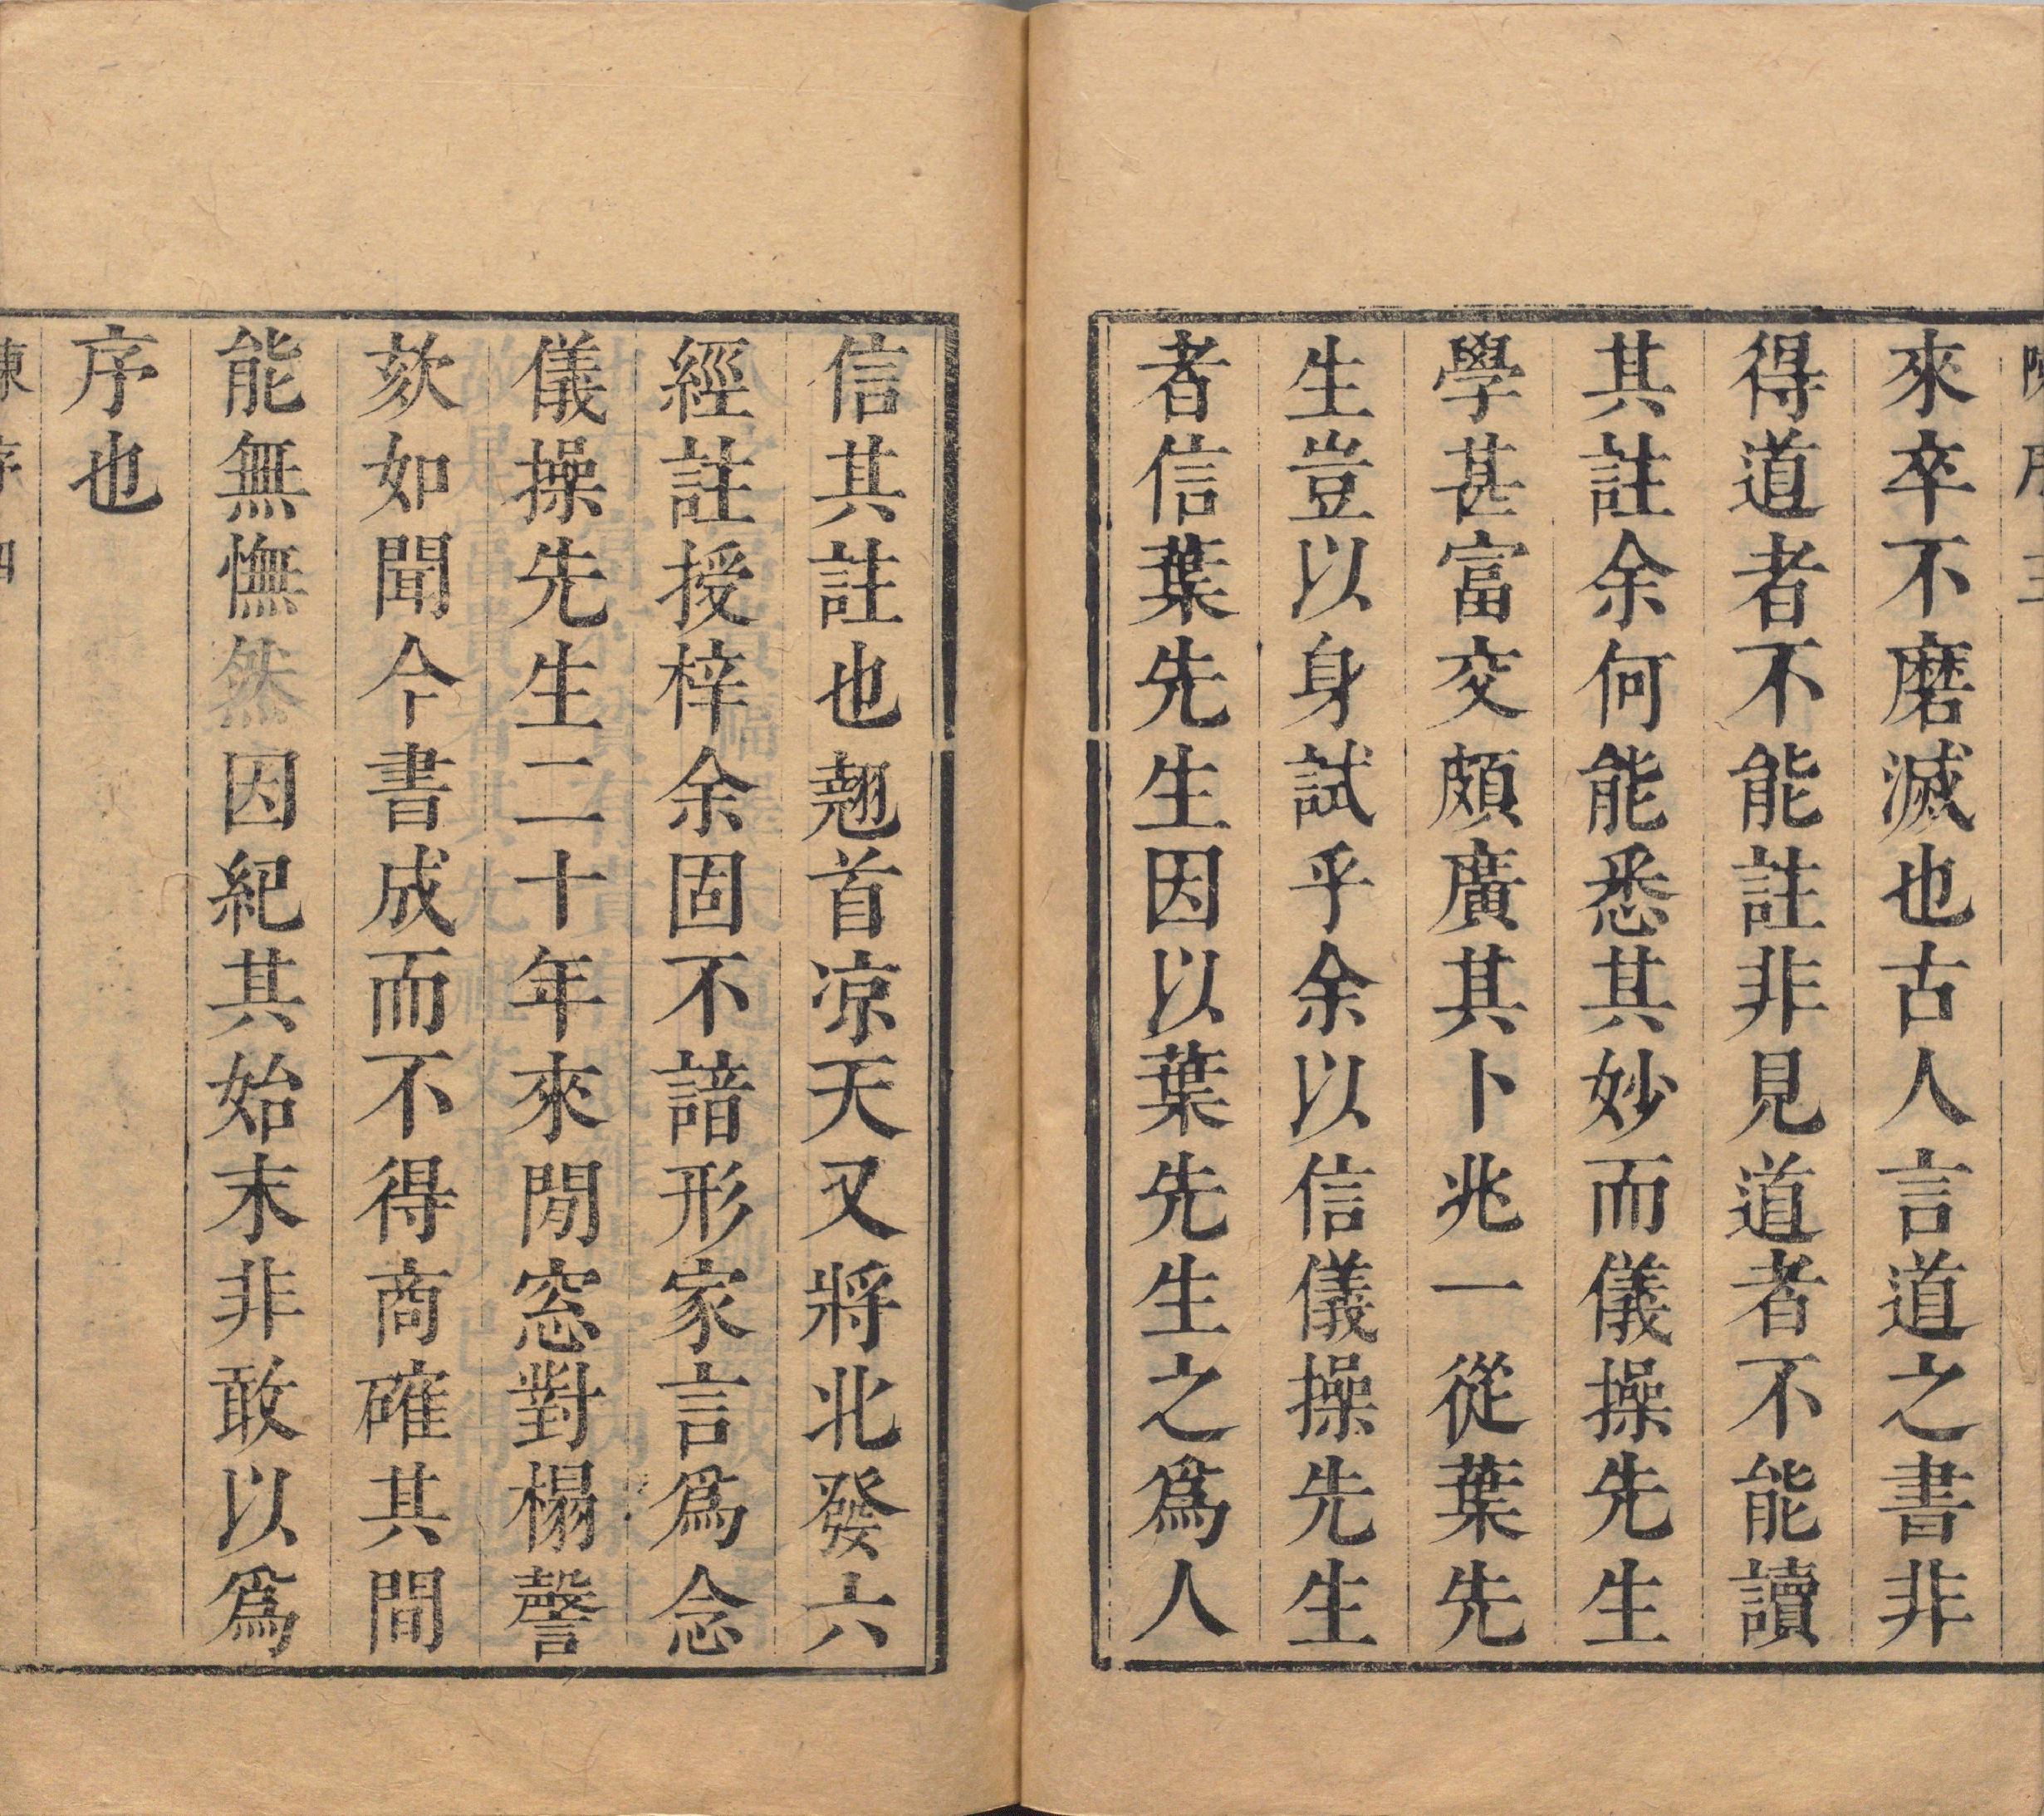 陳序三
來卒不磨滅也古人言道之書非
得道者不能註非見道者不能讀
其註余何能悉其妙而儀操先生
學甚富交頗廣其卜兆一從葉先
生豈以身試乎余以信儀操先生
者信葉先生因以葉先生之爲人
信其註也翹首凉天又將北發六
經註授梓余固不諳形家言爲念
儀操先生二十年來閒窓對榻謦
欬如聞今書成而不得商確其間
能無憮然因紀其始末非敢以爲
序也
陳序四